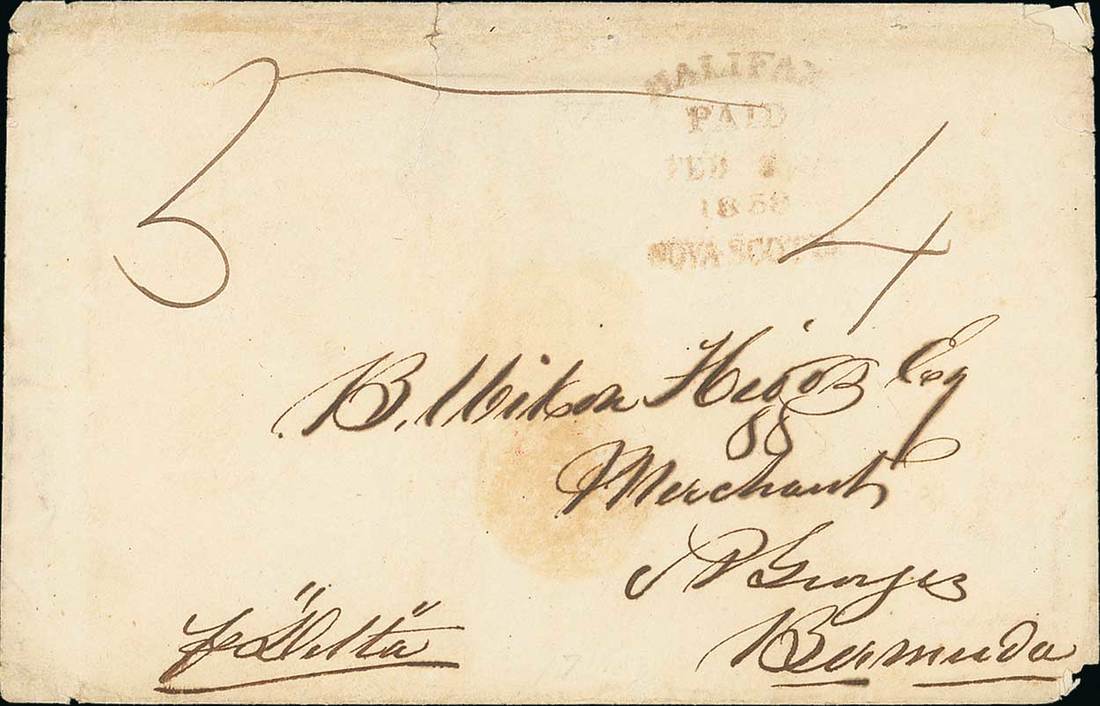 HALIFAX
PAID
FEB
1858
NOVA SCOTIA
3
4
B. Wilson Higgs Esq
Merchant
St Georges
Bermuda
pr "Delta"